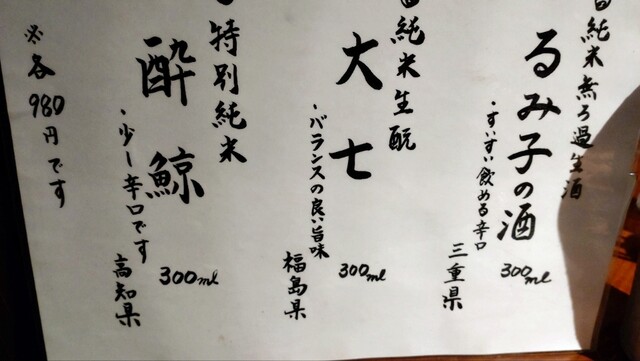 純米無ろ過生酒
るみ子の酒
・すいすい飲める辛口
三重県
300ml
純米生酛
大七
・バランスの良い旨味
福島県
300ml
特別純米
酔鯨
・少し辛口です
高知県
300ml
※各980円です